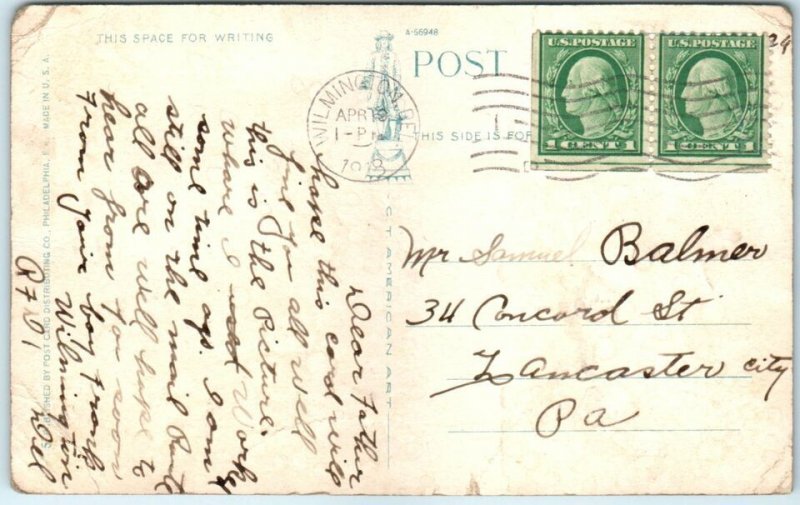 THIS SPACE FOR WRITING
A-56948
POST
THIS SIDE IS FOR
WILMINGTON, DEL
APR 18
1-PM
1918
U.S. POSTAGE
1 CENT 1
U.S. POSTAGE
1 CENT 1
29
Mr Samuel Balmer
34 Concord St
Lancaster City
Pa
Dear Father
hope this card will
find you all well
this is the Picture
where I used Work
some time ago. I am
still on the mail Rout
all are well hope to
hear from you soon
From Your boy Frank
Wilmington
Del
R F D 1
CT AMERICAN ART
PUBLISHED BY POST CARD DISTRIBUTING CO., PHILADELPHIA, PA. MADE IN U.S.A.